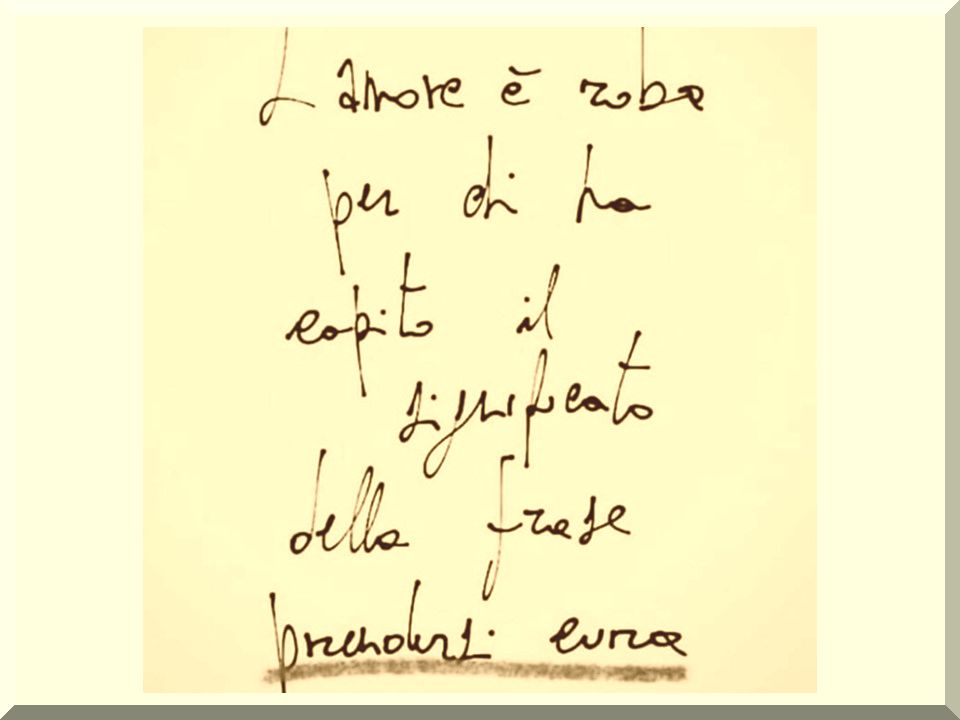 L'amore è roba
per chi ha
capito il
significato
della frase
prendersi cura